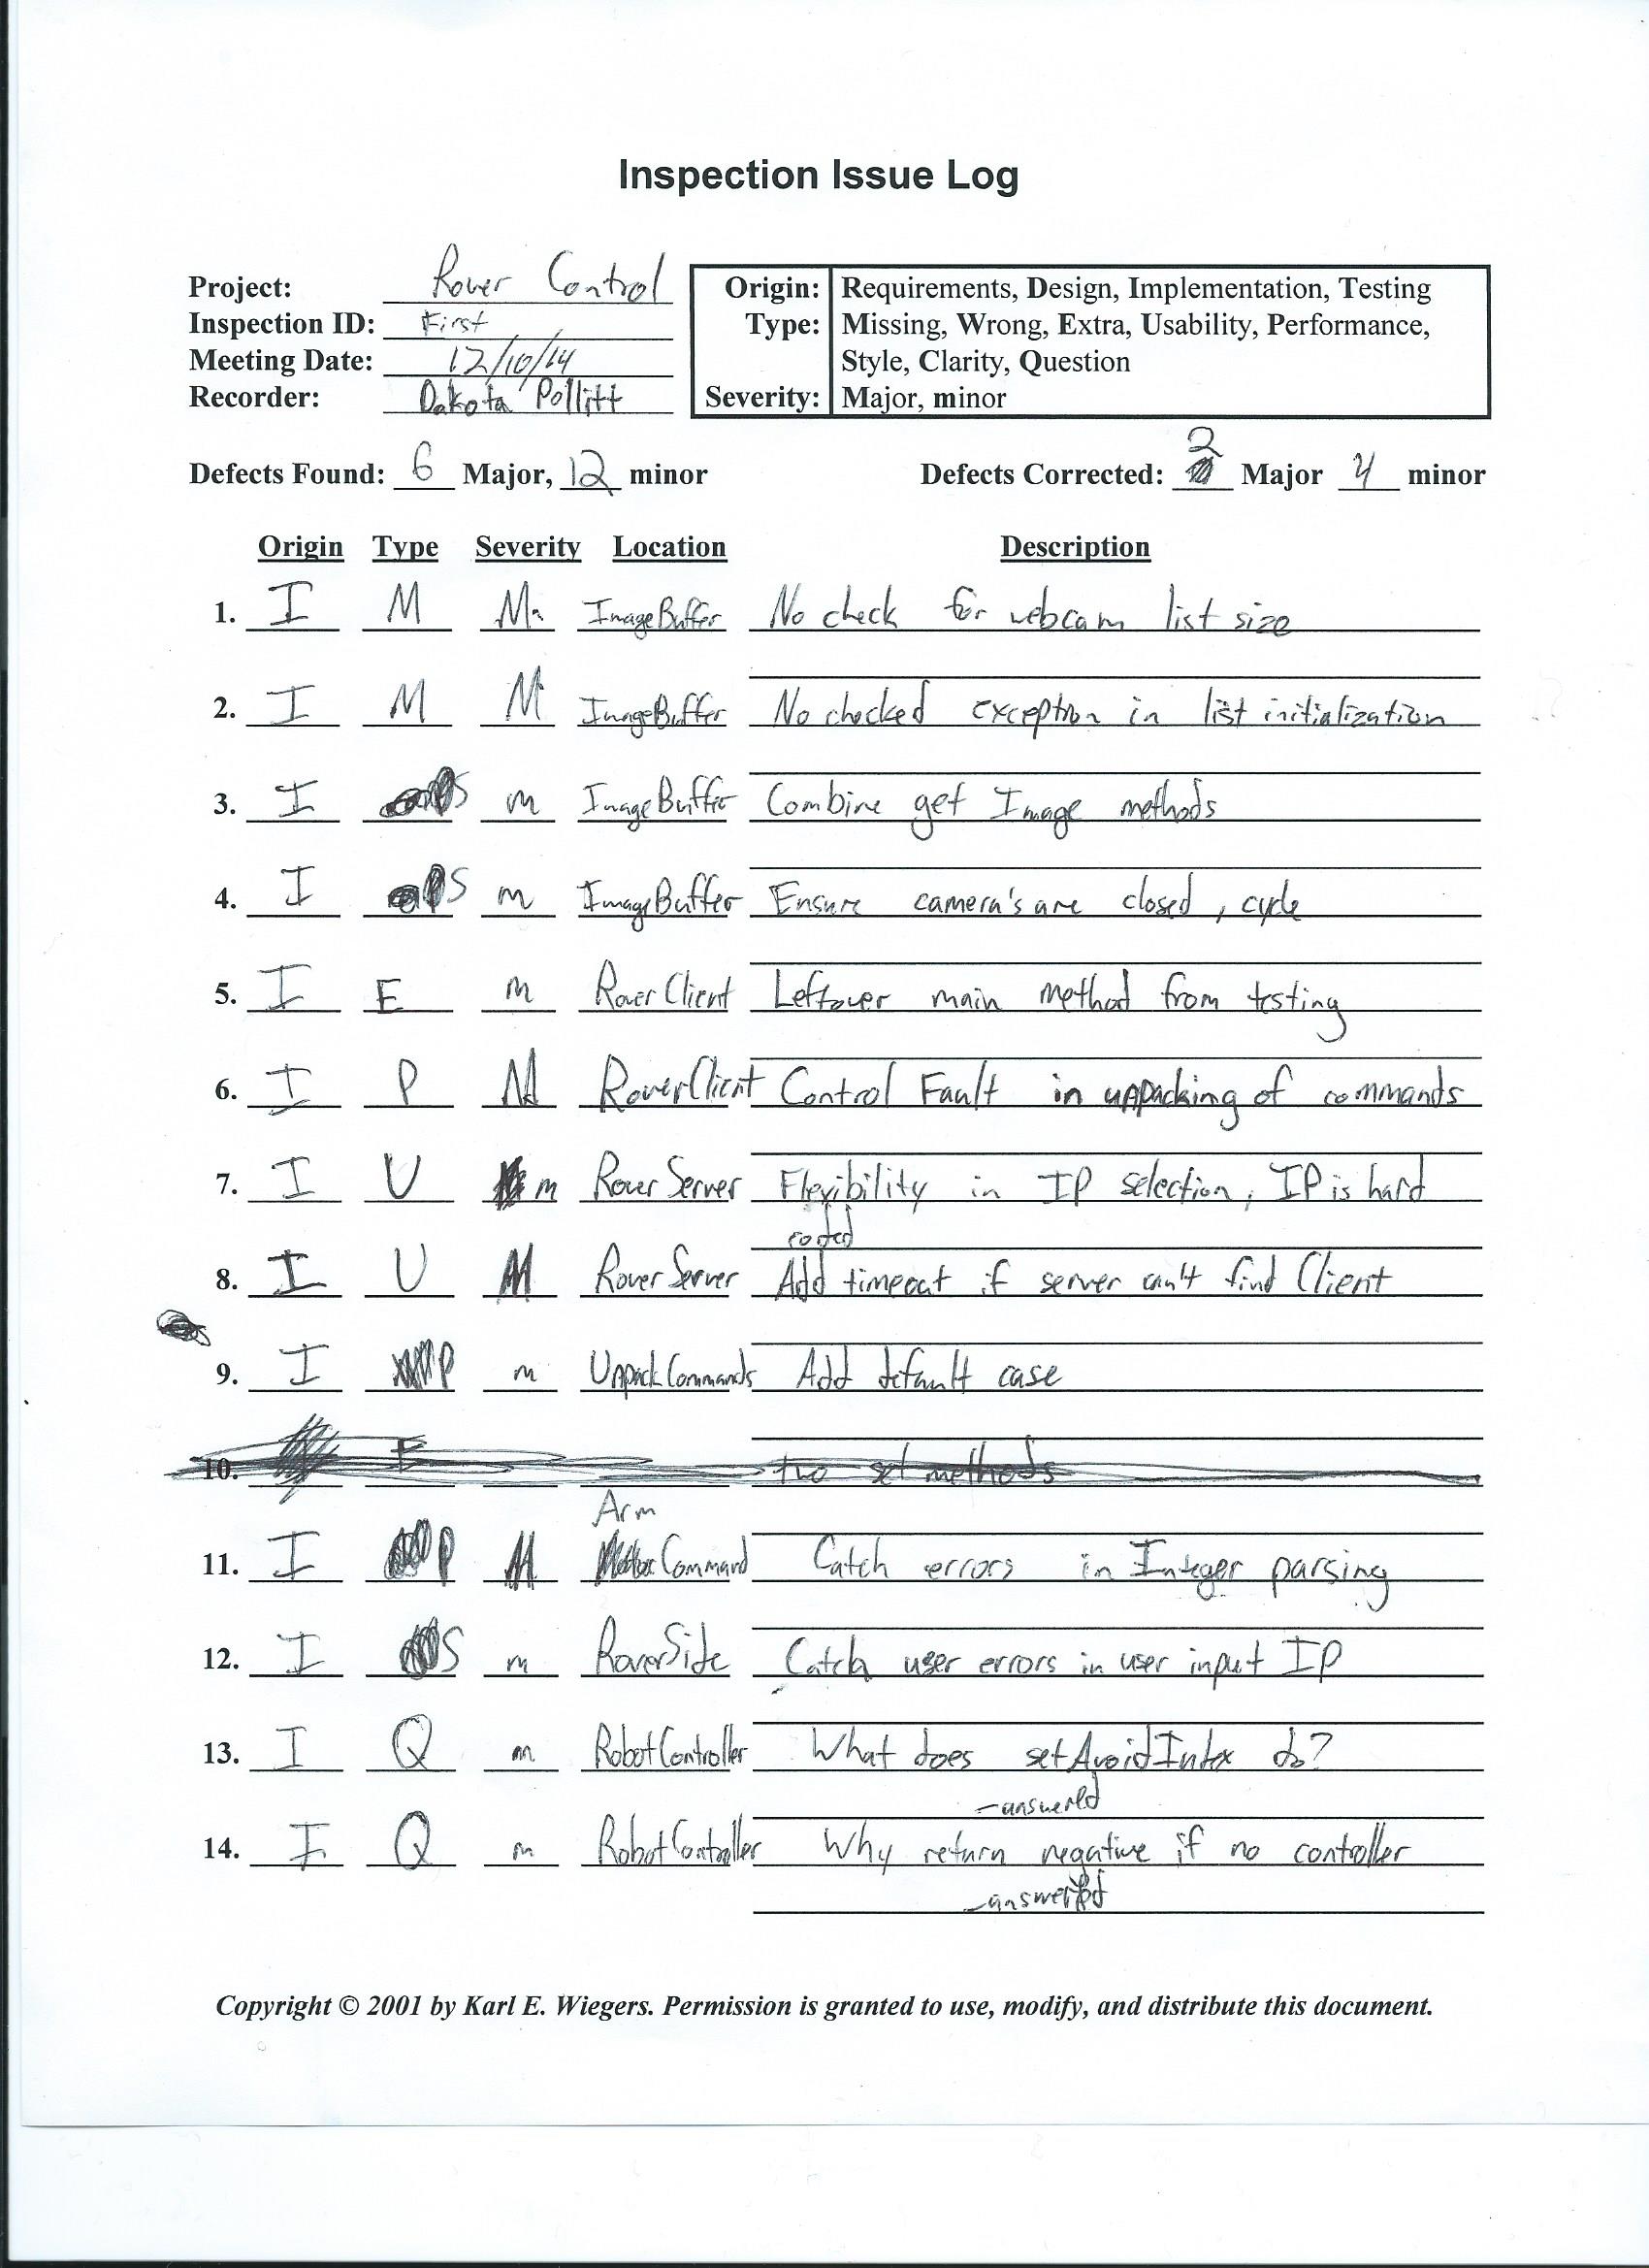 Inspection Issue Log
Project: Rover Control
Inspection ID: First
Meeting Date: 12/10/14
Recorder: Dakota Pollitt
Origin: Requirements, Design, Implementation, Testing
Type: Missing, Wrong, Extra, Usability, Performance,
Style, Clarity, Question
Severity: Major, minor
Defects Found: 6 Major, 12 minor Defects Corrected: 2 Major 4 minor
Origin Type Severity Location Description
1. I M M ImageBuffer No check for webcam list size
2. I M M ImageBuffer No checked exception in list initialization
3. I S m ImageBuffer Combine get Image methods
4. I S m ImageBuffer Ensure camera's are closed, cycle
5. I E m RoverClient Leftover main method from testing
6. I P M RoverClient Control Fault in unpacking of commands
7. I U m RoverServer Flexibility in IP selection, IP is hard
coded
8. I U M RoverServer Add timeout if server can't find Client
9. I P m UnpackCommands Add default case
10. E two set methods
Arm
11. I P M Command Catch errors in Integer parsing
12. I S m RoverSide Catch user errors in user input IP
13. I Q m RobotController What does setAvoidIndex do?
-answered
14. I Q m RobotController Why return negative if no controller
-answered
Copyright © 2001 by Karl E. Wiegers. Permission is granted to use, modify, and distribute this document.